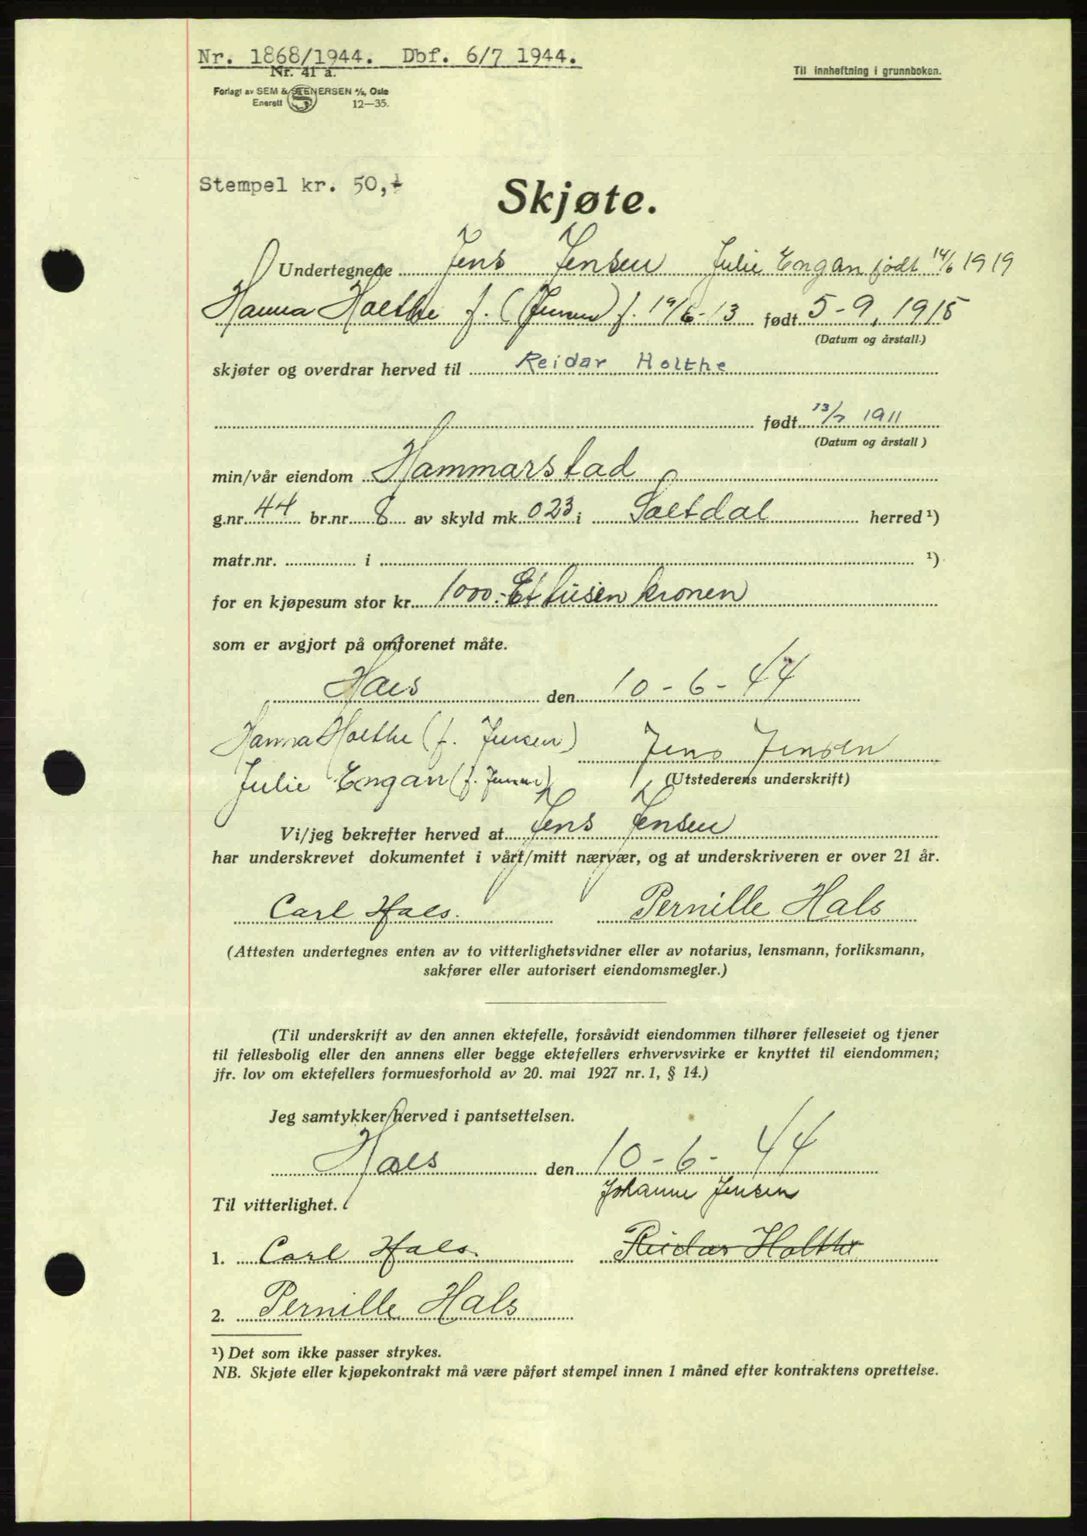 Nr. 1868/1944. Dbf. 6/7 1944.
Nr. 41 a.
Til innheftning i grunnboken.
Forlagt av SEM & STENERSEN A/S, Oslo
Enerett 12—35.
Stempel kr. 50,-
Skjøte.
Undertegnede Jens Jensen Julie Engan født 14/6 1919
Hanna Holthe f. (Jensen) f. 19/6-13 født 5-9, 1915
(Datum og årstall.)
skjøter og overdrar herved til Reidar Holthe
født 13/7 1911
(Datum og årstall )
min/vår eiendom Hammarstad
g.nr. 44 br.nr. 8 av skyld mk. 023 i Saltdal herred ¹)
matr.nr. i ¹)
for en kjøpesum stor kr. 1000.- Et tusen kronen
som er avgjort på omforenet måte.
Hals den 10-6-44
Hanna Holthe (f. Jensen) Jens Jensen
Julie Engan (f. Jensen) (Utstederens underskrift)
Vi/jeg bekrefter herved at Jens Jensen
har underskrevet dokumentet i vårt/mitt nærvær, og at underskriveren er over 21 år.
Carl Hals. Pernille Hals
(Attesten undertegnes enten av to vitterlighetsvidner eller av notarius, lensmann, forliksmann,
sakfører eller autorisert eiendomsmegler.)
(Til underskrift av den annen ektefelle, forsåvidt eiendommen tilhører felleseiet og tjener
til fellesbolig eller den annens eller begge ektefellers erhvervsvirke er knyttet til eiendommen;
jfr. lov om ektefellers formuesforhold av 20. mai 1927 nr. 1, § 14.)
Jeg samtykker herved i pantsettelsen.
Hals den 10-6-44
Johanne Jensen
Til vitterlighet.
1. Carl Hals. Reidar Holthe
2. Pernille Hals
¹) Det som ikke passer strykes.
NB. Skjøte eller kjøpekontrakt må være påført stempel innen 1 måned efter kontraktens oprettelse.